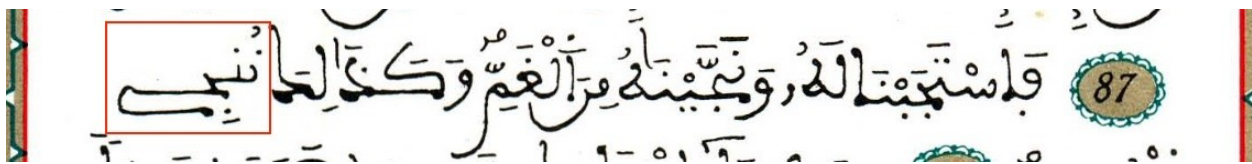 87 فَاسْتَجَبْنَا لَهُۥ وَنَجَّيْنَٰهُ مِنَ اَ۬لْغَمِّۖ وَكَذَٰلِكَ نُنجِے